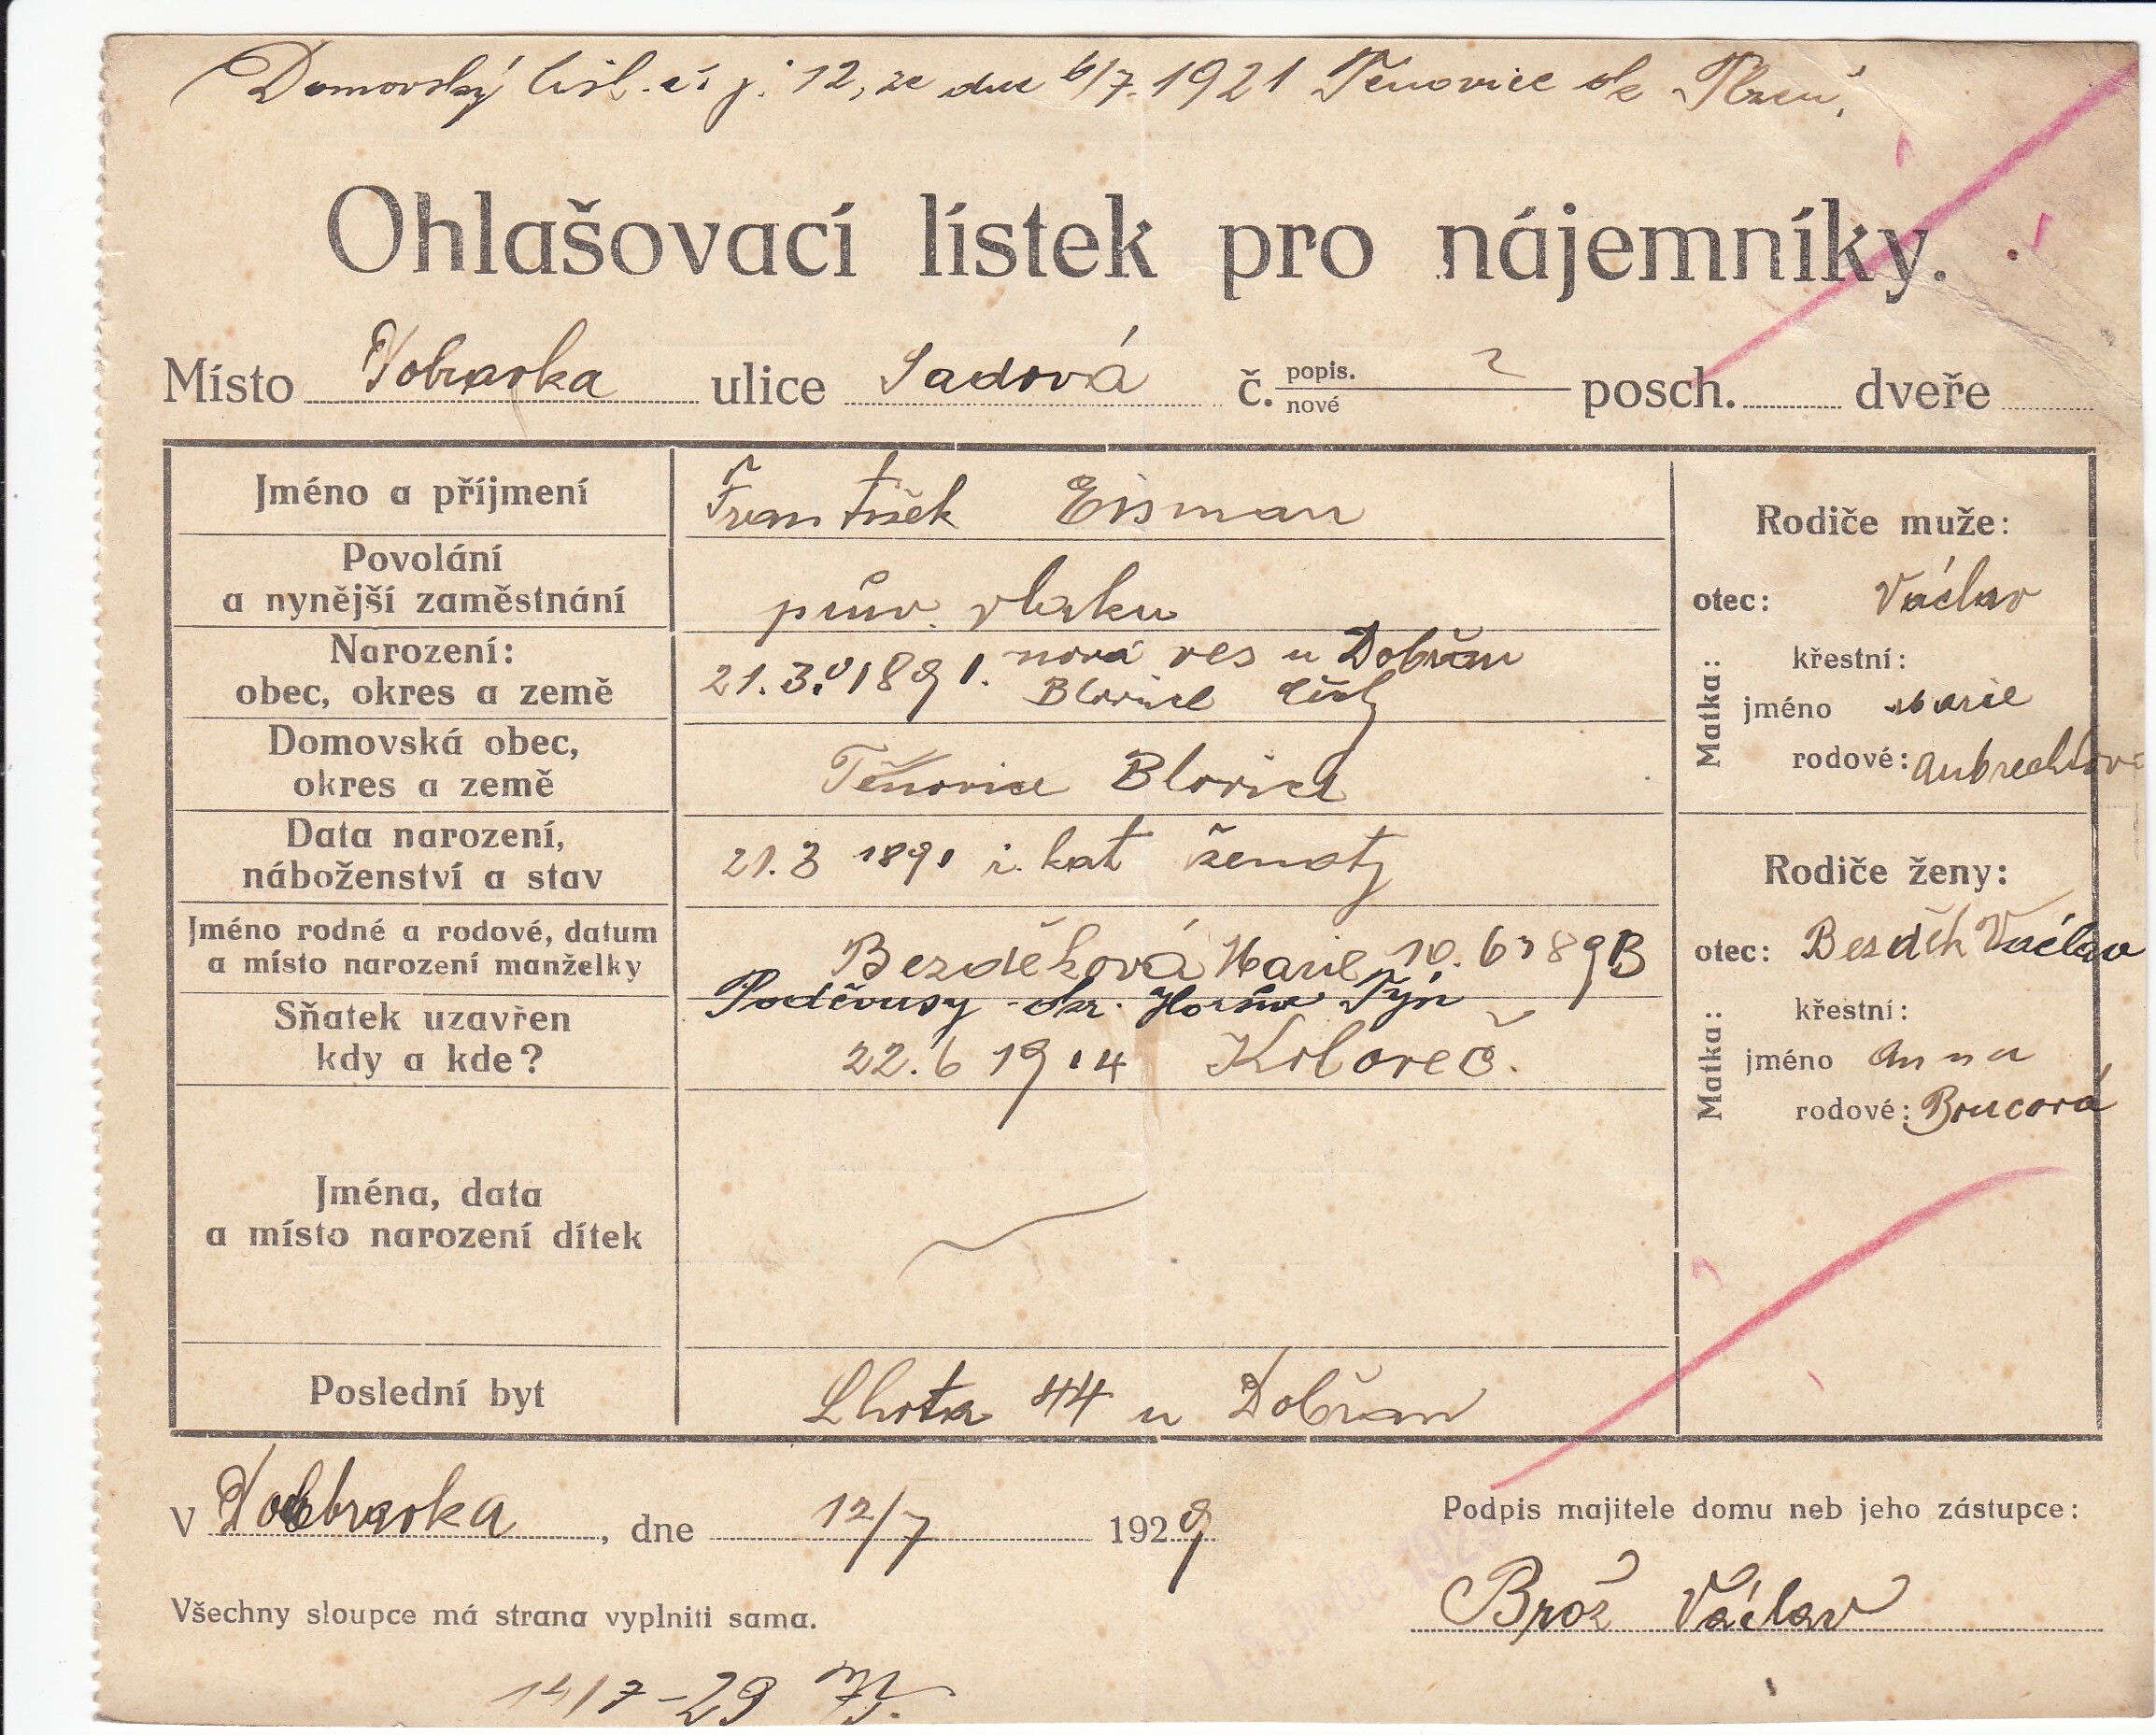 Domovský list. čís j. 12, ze dne 6/7. 1921 Těnovice ok Plzeň,
Ohlašovací lístek pro nájemníky.
Místo Dobraska ulice Sadová č. popis. nové 2 posch. dveře
Jméno a příjmení František Eisman
Povolání
a nynější zaměstnání prův. vlaku
Narození:
obec, okres a země 21.3. 1891. nová ves u Dobřan
Blovice Čechy
Domovská obec,
okres a země Těnovice Blovice
Data narození,
náboženství a stav 21.3 1891 ř. kat ženatý
Jméno rodné a rodové, datum
a místo narození manželky Bezděková Marie 10. 6 189
Poděvusy okr. Horšův Týn
Sňatek uzavřen
kdy a kde? 22.6 1914 Koloveč.
Jména, data
a místo narození dítek
Poslední byt Lhota 44 u Dobřan
Rodiče muže:
otec: Václav
Matka:
křestní:
jméno Marie
rodové: Aubrechtová
Rodiče ženy:
otec: Bezděk Václav
Matka:
křestní:
jméno Anna
rodové: Brucová
V Doubravka, dne 12/7 1929
Podpis majitele domu neb jeho zástupce:
Brož Václav
Všechny sloupce má strana vyplniti sama.
14/7-29